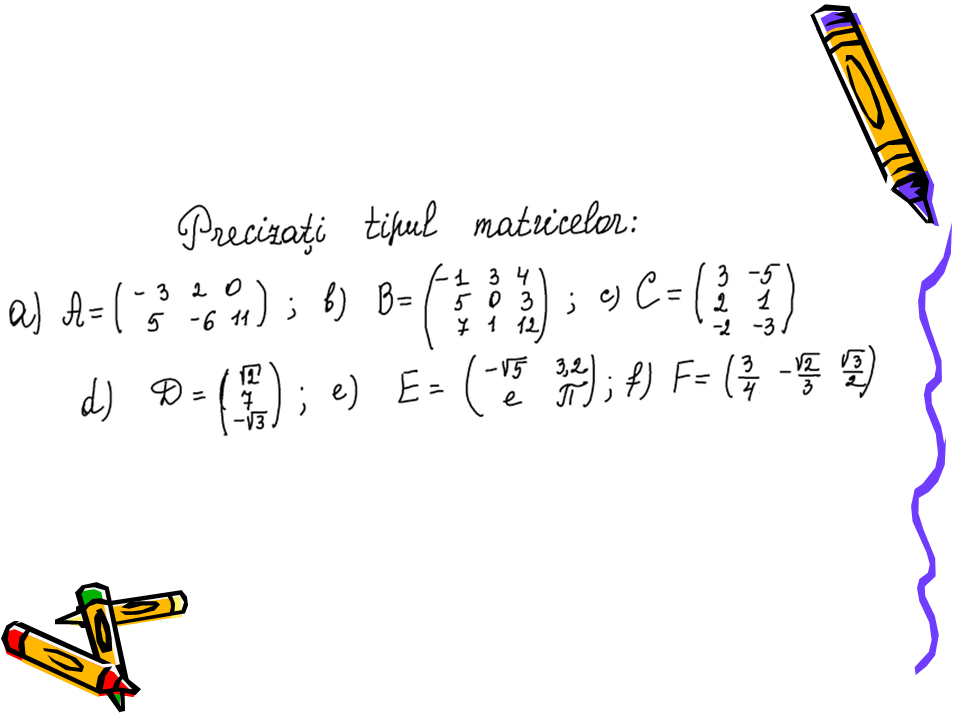 Precizați tipul matricelor:
a) A = ( -3 2 0 ; 5 -6 11 ) ; b) B = ( -1 3 4 ; 5 0 3 ; 7 1 12 ) ; c) C = ( 3 -5 ; 2 1 ; -2 -3 )
d) D = ( √2 ; 7 ; -√3 ) ; e) E = ( -√5 3,2 ; e π ) ; f) F = ( 3/4 -√2/3 √3/2 )